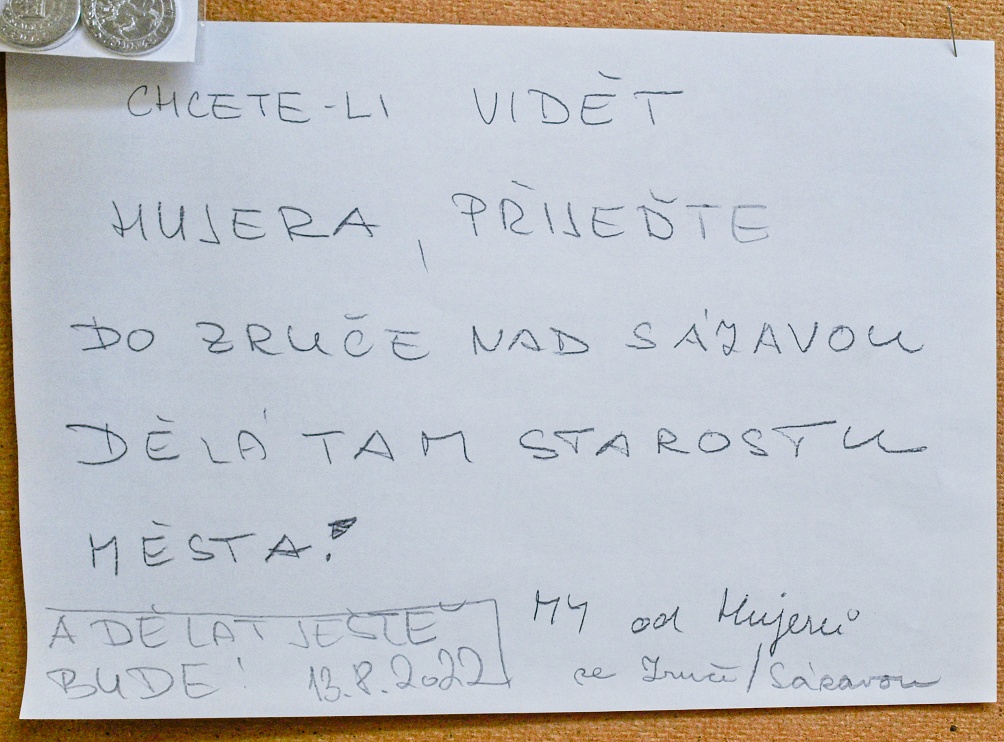 CHCETE-LI VIDĚT
HUJERA, PŘIJEĎTE
DO ZRUČE NAD SÁZAVOU
DĚLÁ TAM STAROSTU
MĚSTA!
A DĚLAT JEŠTĚ
BUDE! 13.8.2022
MY od Hujerů
ze Zruče/Sázavou